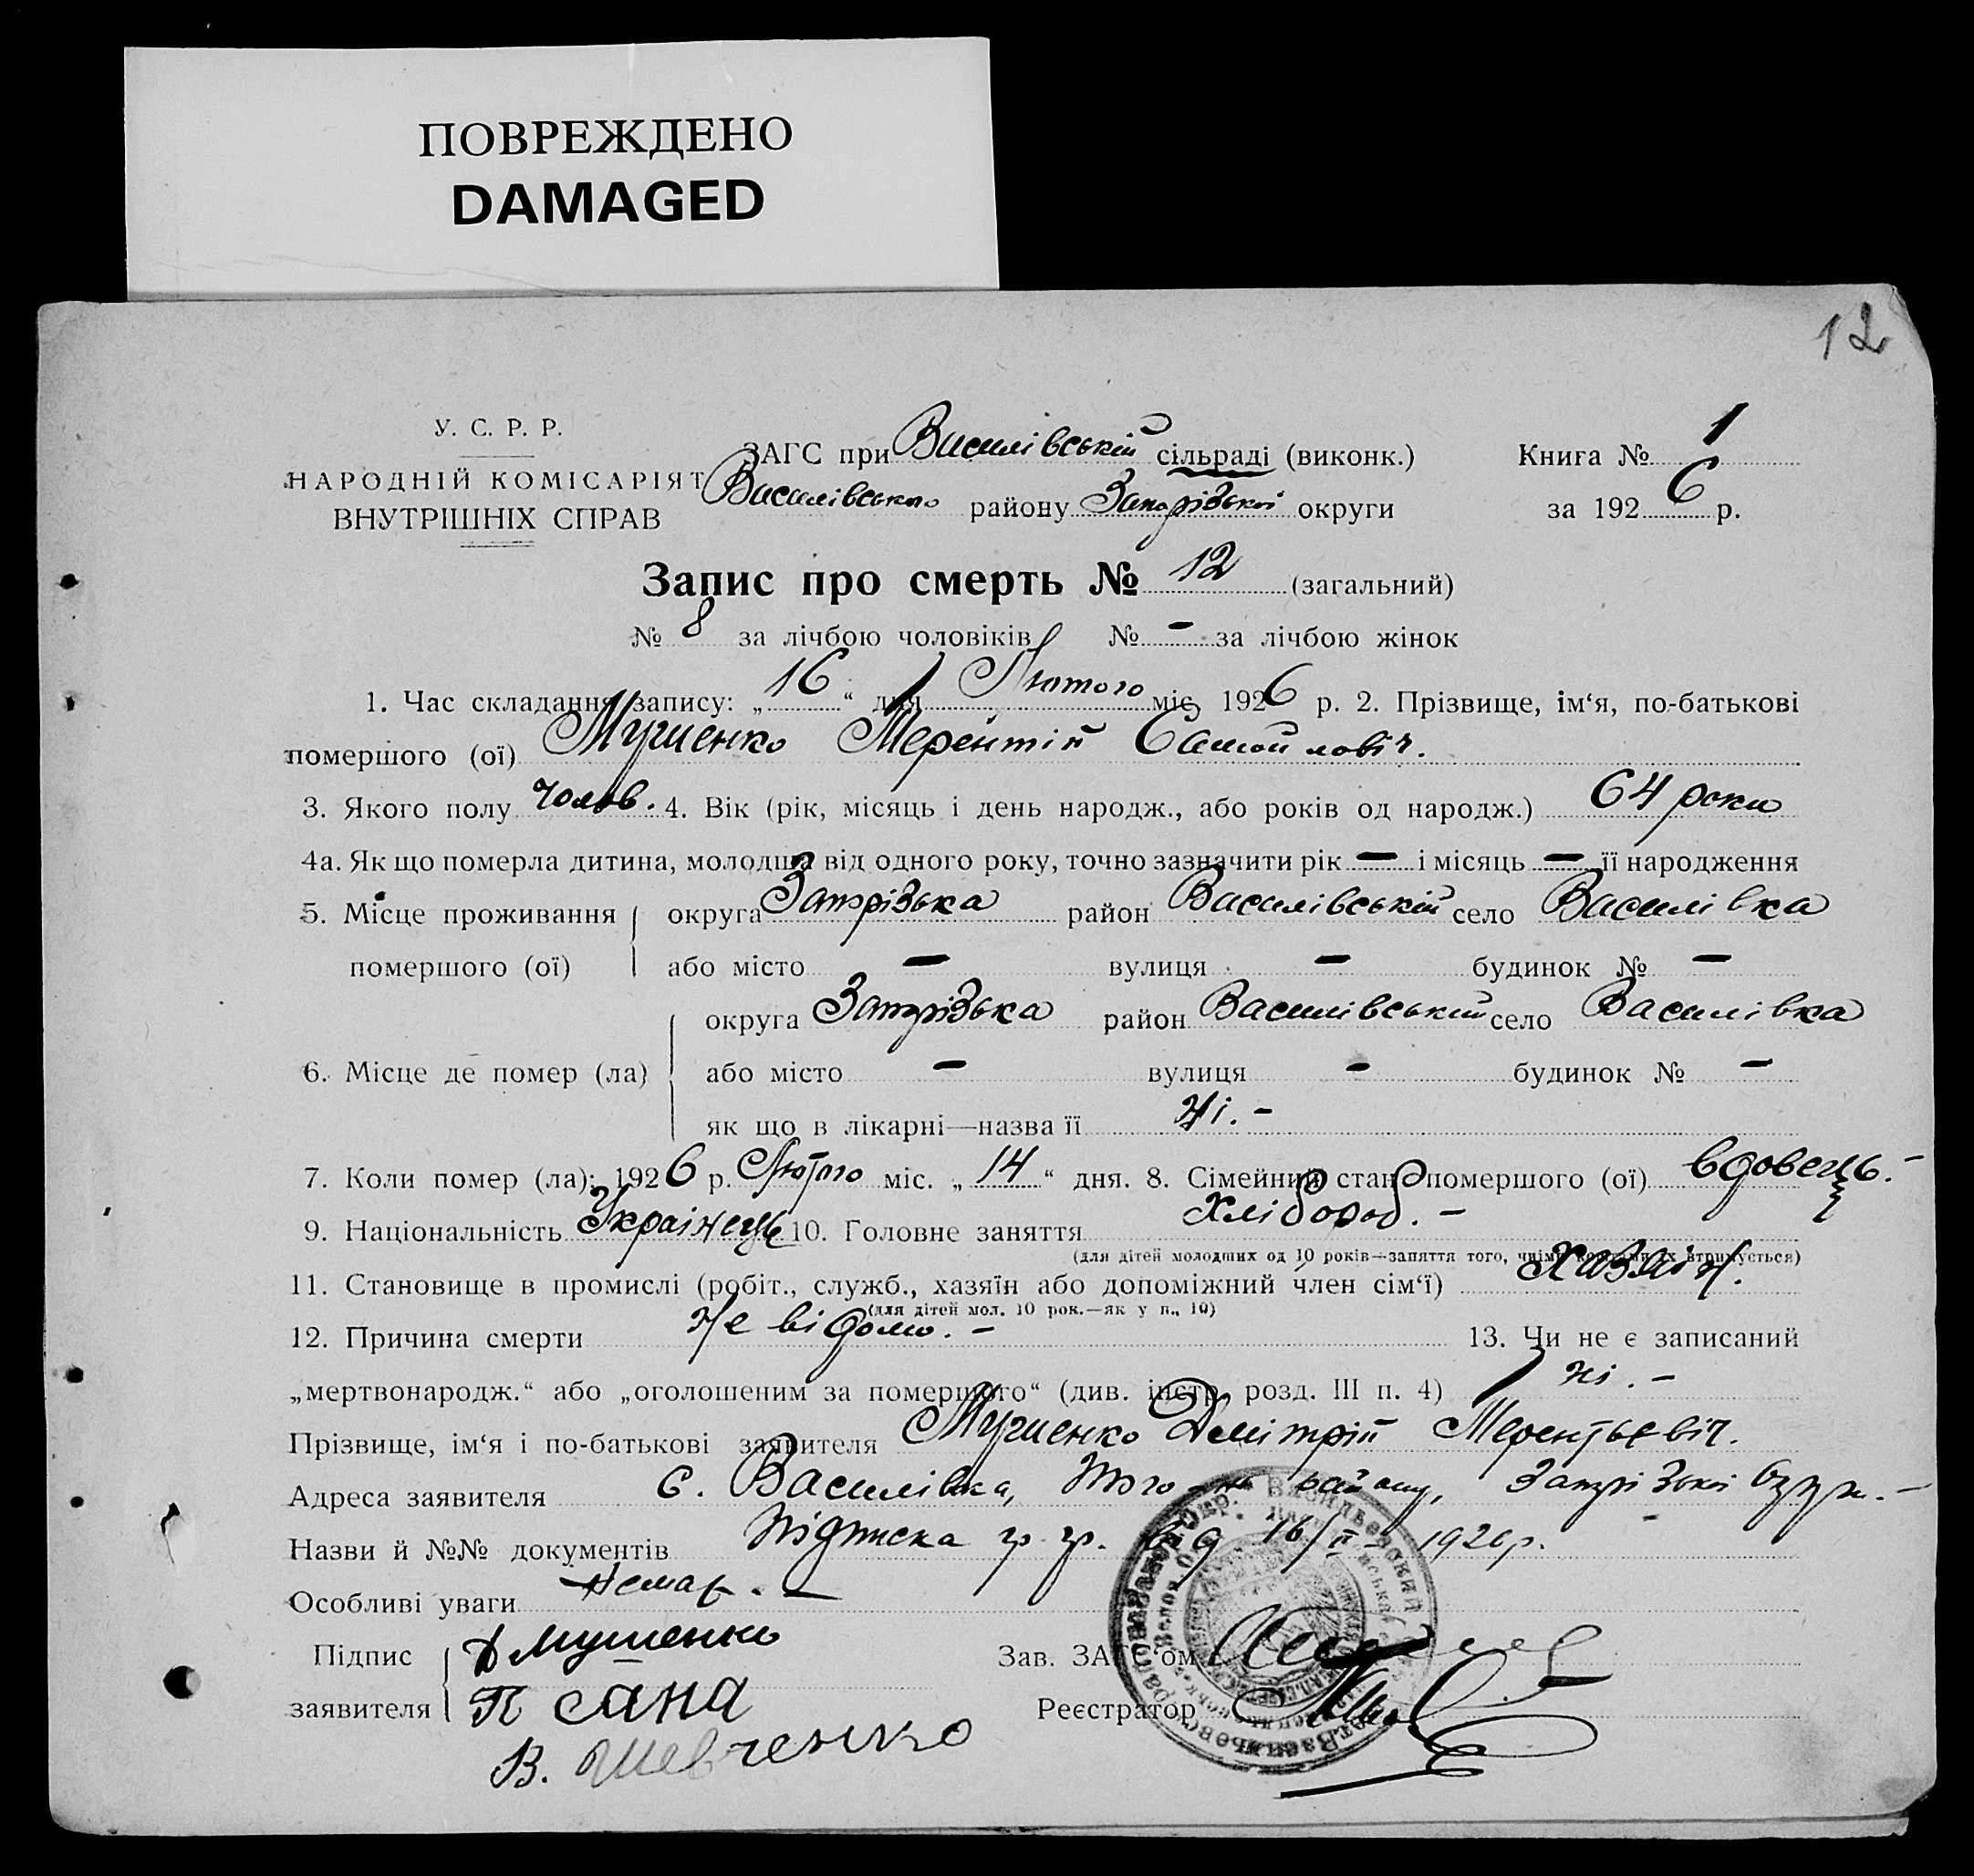 ПОВРЕЖДЕНО
DAMAGED
12
У. С. Р. Р.
НАРОДНІЙ КОМІСАРІЯТ
ВНУТРІШНІХ СПРАВ
ЗАГС при Василівській сільраді (виконк.)
Василівського району Запорізької округи
Книга № 1
за 1926 р.
Запис про смерть № 12 (загальний)
№ 8 за лічбою чоловіків № - за лічбою жінок
1. Час складання запису: „16“ дня Лютого міс. 1926 р. 2. Прізвище, ім‘я, по-батькові
помершого (ої) Мушенко Терентій Самойловіч.
3. Якого полу чолов. 4. Вік (рік, місяць і день народж., або років од народж.) 64 роки
4а. Як що померла дитина, молодша від одного року, точно зазначити рік — і місяць — її народження
5. Місце проживання округа Запорізька район Василівській село Василівка
помершого (ої) або місто — вулиця — будинок № —
округа Запорізька район Василівський село Василівка
6. Місце де помер (ла) або місто — вулиця - будинок № —
як що в лікарні—назва її Ні. -
7. Коли помер (ла): 1926 р. Лютого міс. „14“ дня. 8. Сімейний стан помершого (ої) вдовець. -
9. Національність Українець 10. Головне заняття Хлібороб. -
(для дітей молодших од 10 років—заняття того, чиїми коштами їх втримується)
11. Становище в промислі (робіт., служб., хазяїн або допоміжний член сім‘ї) Хазяїн.
(для дітей мол. 10 рок.—як у п., 10)
12. Причина смерти Не відомо. - 13. Чи не є записаний
„мертвонародж.“ або „оголошеним за помершого“ (див. інстр. розд. III п. 4) ні. -
Прізвище, ім‘я і по-батькові заявителя Мушенко Дмітрій Терентьевіч.
Адреса заявителя с. Василівка, того-ж району, Запорізької Округи. -
Назви й №№ документів Підписка гр. гр. від 16/II - 1926 р.
Особливі уваги Немає. —
Підпис Д Мушенко Зав. ЗАГС‘ом
заявителя П Сана Реєстратор
В. Шевченко